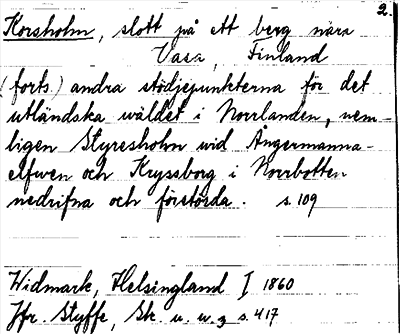 2.
Korsholm, slott på ett berg nära
Vasa, Finland
(forts.) andra stödjepunkterna för det
utländska wäldet i Norrlanden, nem-
ligen Styresholm wid Ångermanna-
elfwen och Kryssborg i Norrbotten
nedrifna och förstörda. s. 109
Widmark, Helsingland I 1860
Jfr. Styffe, Sk. u. u. 3 s. 417